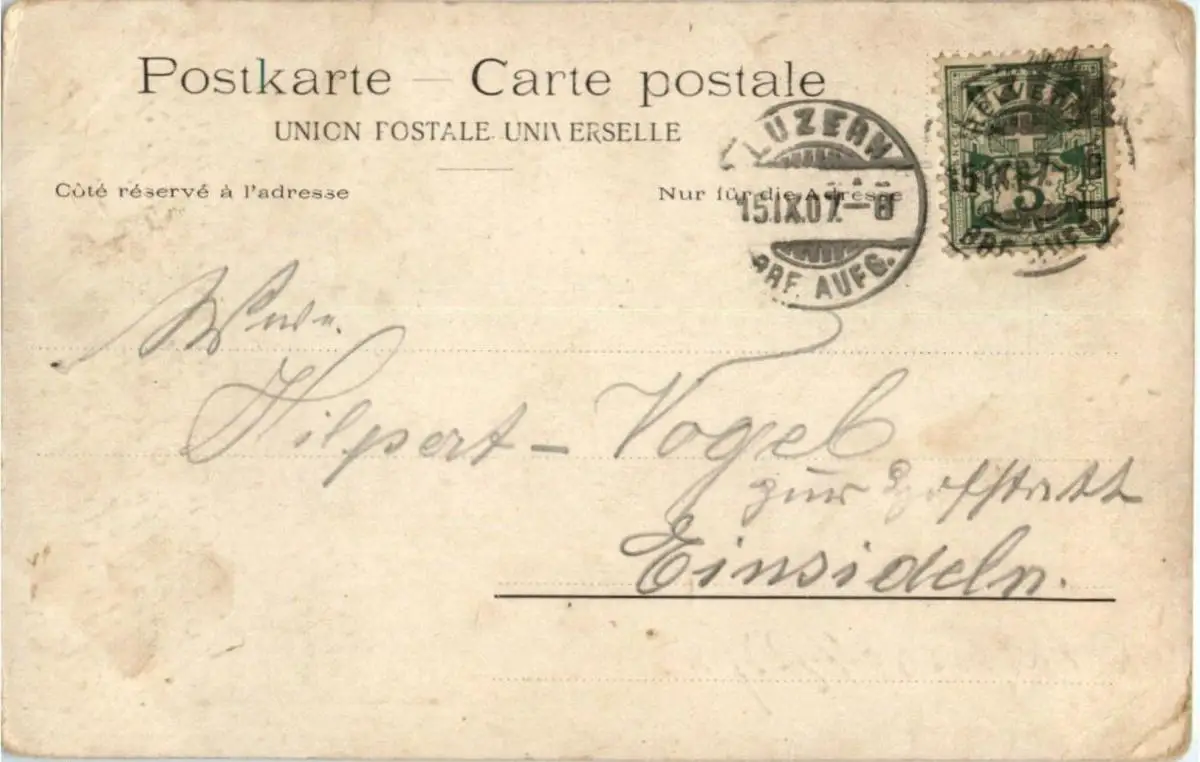 Postkarte — Carte postale
UNION POSTALE UNIVERSELLE
Côté réservé à l'adresse
Nur für die Adresse
LUZERN
15.IX.07.–8
BRF. AUFG.
HELVETIA
5
15.IX.07.–8
BRF. AUFG.
Wwe.
Hilpert - Vogel
zur Hofstatt
Einsideln.